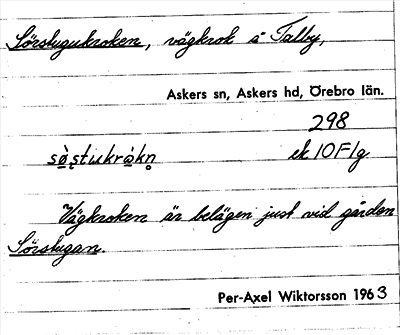 Sörstugukroken, vägkrok å Talby,
Askers sn, Askers hd, Örebro län.
298
sö̀stukrákn̥ ek 10F1g
Vägkroken är belägen just vid gården
Sörstugan.
Per-Axel Wiktorsson 1963